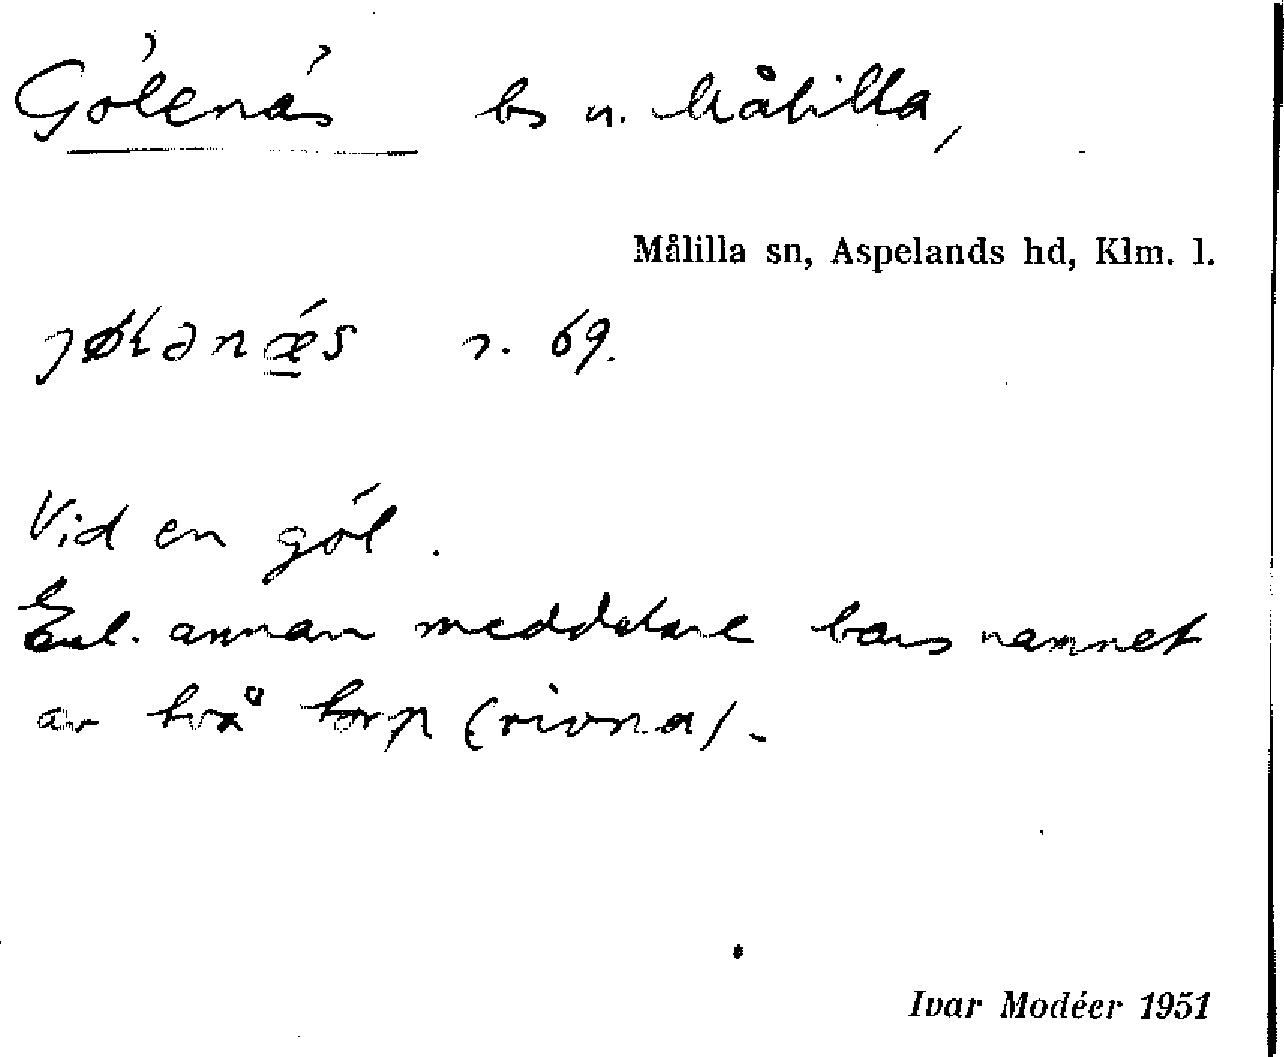 Gölenäs bs u. Målilla,
Målilla sn, Aspelands hd, Klm. l.
jølənǽ̠s r. 69.
Vid en göl.
Enl. annan meddelare bars namnet
av två torp (rivna).
Ivar Modéer 1951